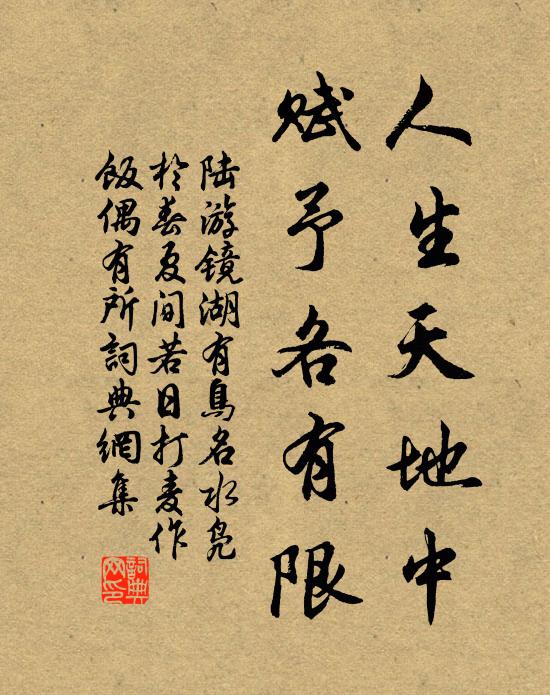 人生天地中
赋予各有限
陆游镜湖有鸟名水凫
於春夏间若曰打麦作
饭偶有所詞典網集
詞典网印